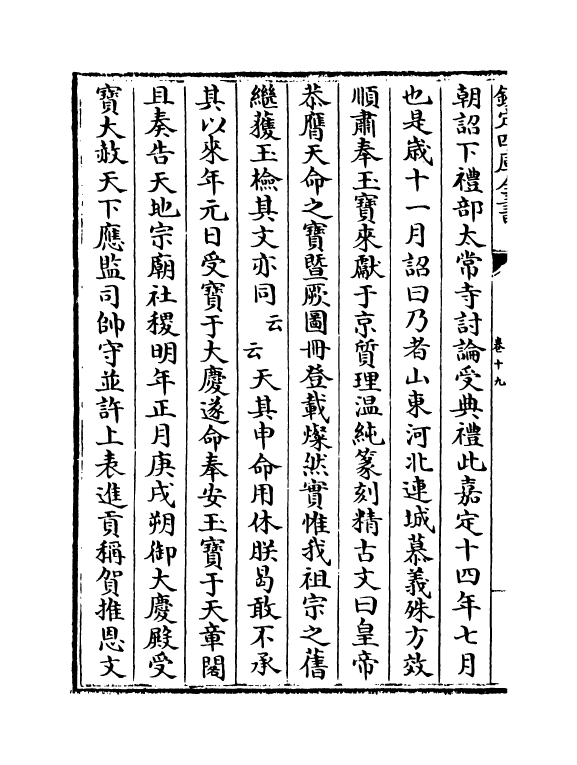 欽定四庫全書
卷十九
朝詔下禮部太常寺討論受典禮此嘉定十四年七月
也是歲十一月詔曰乃者山東河北連城慕義殊方效
順肅奉玉寶來獻于京質理温純篆刻精古文曰皇帝
恭膺天命之寶暨厥圖冊登載燦然實惟我祖宗之舊
繼獲玉檢其文亦同云云天其申命用休朕曷敢不承
其以來年元日受寶于大慶遂命奉安玉寶于天章閣
且奏告天地宗廟社稷明年正月庚戌朔御大慶殿受
寶大赦天下應監司帥守並許上表進貢稱賀推恩文